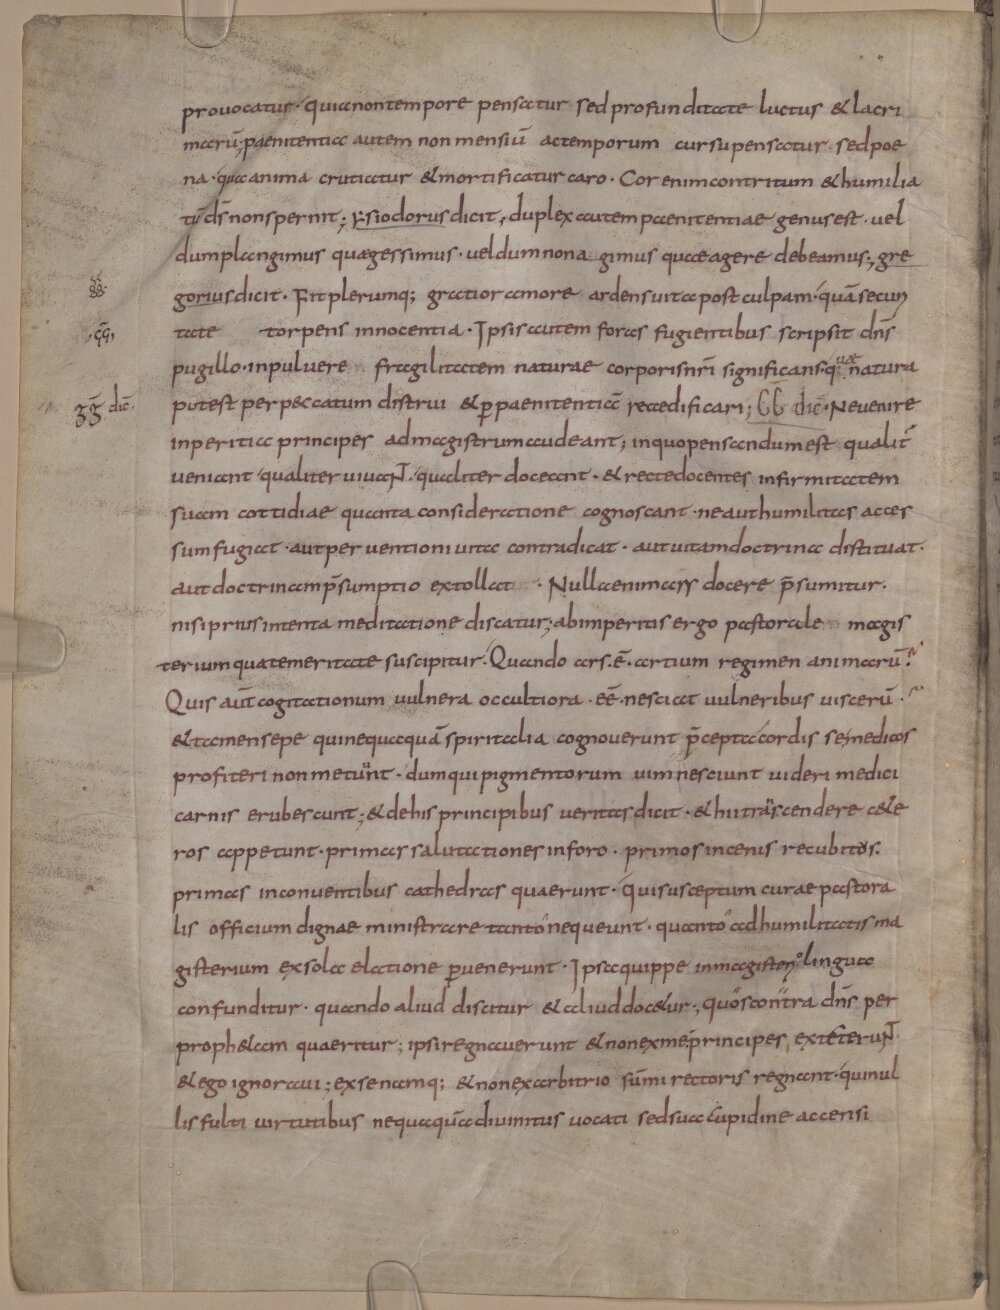 provocatur · quia non tempore pensatur sed profunditate luctus & lacri
marū; paenitentia autem non mensiū ac temporum cursu pensatur sed poe
na · qua anima cruciatur & mortificatur caro · Cor enim contritum & humilia
tū d̄s non spernit; Esiodorus dicit, duplex autem paenitentiae genus est · vel
dum plangimus quae gessimus · vel dum non agimus quae agere debeamus; gre
gorius dicit · Fit plerumq; gratior amore ardens vita post culpam · quā secun
tate torpens innocentia · Ipsis autem foras fugientibus scripsit dn̄s
pugillo · in pulvere fragilitatem naturae corporis nr̄i significans · q: natura
potest per peccatum distrui & p paenitentiā reaedificari; GG dic̄ · Ne venire
inperitia principes ad magistrum audeant; in quo pensandum est qualit̄
veniant qualiter vivaNT · qualiter doceant · & recte docentes infirmitatem
suam cottidiae quanta consideratione cognoscant · ne aut humilitas acces
sum fugiat · aut perventioni vita contradicat · aut vitam doctrina distituat ·
aut doctrinam p̄sumptio extollat · Nulla enim ars docere p̄sumitur ·
nisi prius intenta meditatione discatur; ab imperitis ergo pastorale magis
terium qua temeritate suscipitur · Quando ars · ē · artium regimen animarū?
Quis aut̄ cogitationum vulnera occultiora · eē · nesciat vulneribus viscerū ·
& tamen sepe qui nequaquā spiritalia cognoverunt p̄cepta cordis se medicos
profiteri non metunt · dum qui pigmentorum vim nesciunt videri medici
carnis erubescunt; & de his principibus veritas dicit · & hii trāscendere c&e
ros appetunt · primas salutationes in foro · primos in cenis recubitos ·
primas in conventibus cathedras quaerunt · qui susceptum curae pastora
lis officium dignae ministrare tanto nequeunt · quanto ad humilitatis ma
gisterium ex sola elatione pvenerunt · Ipsa quippe in magisterio lingua
confunditur · quando aliud discitur & aliud doc&ur; quos contra dn̄s per
proph&am quaeritur; ipsi regnaverunt & non ex me principes exteteruNT
& ego ignoravi; ex se namq; & non ex arbitrio sūmi rectoris regnant · qui nul
lis fulti virtutibus nequaquā divinitus vocati sed sua cupidine accensi